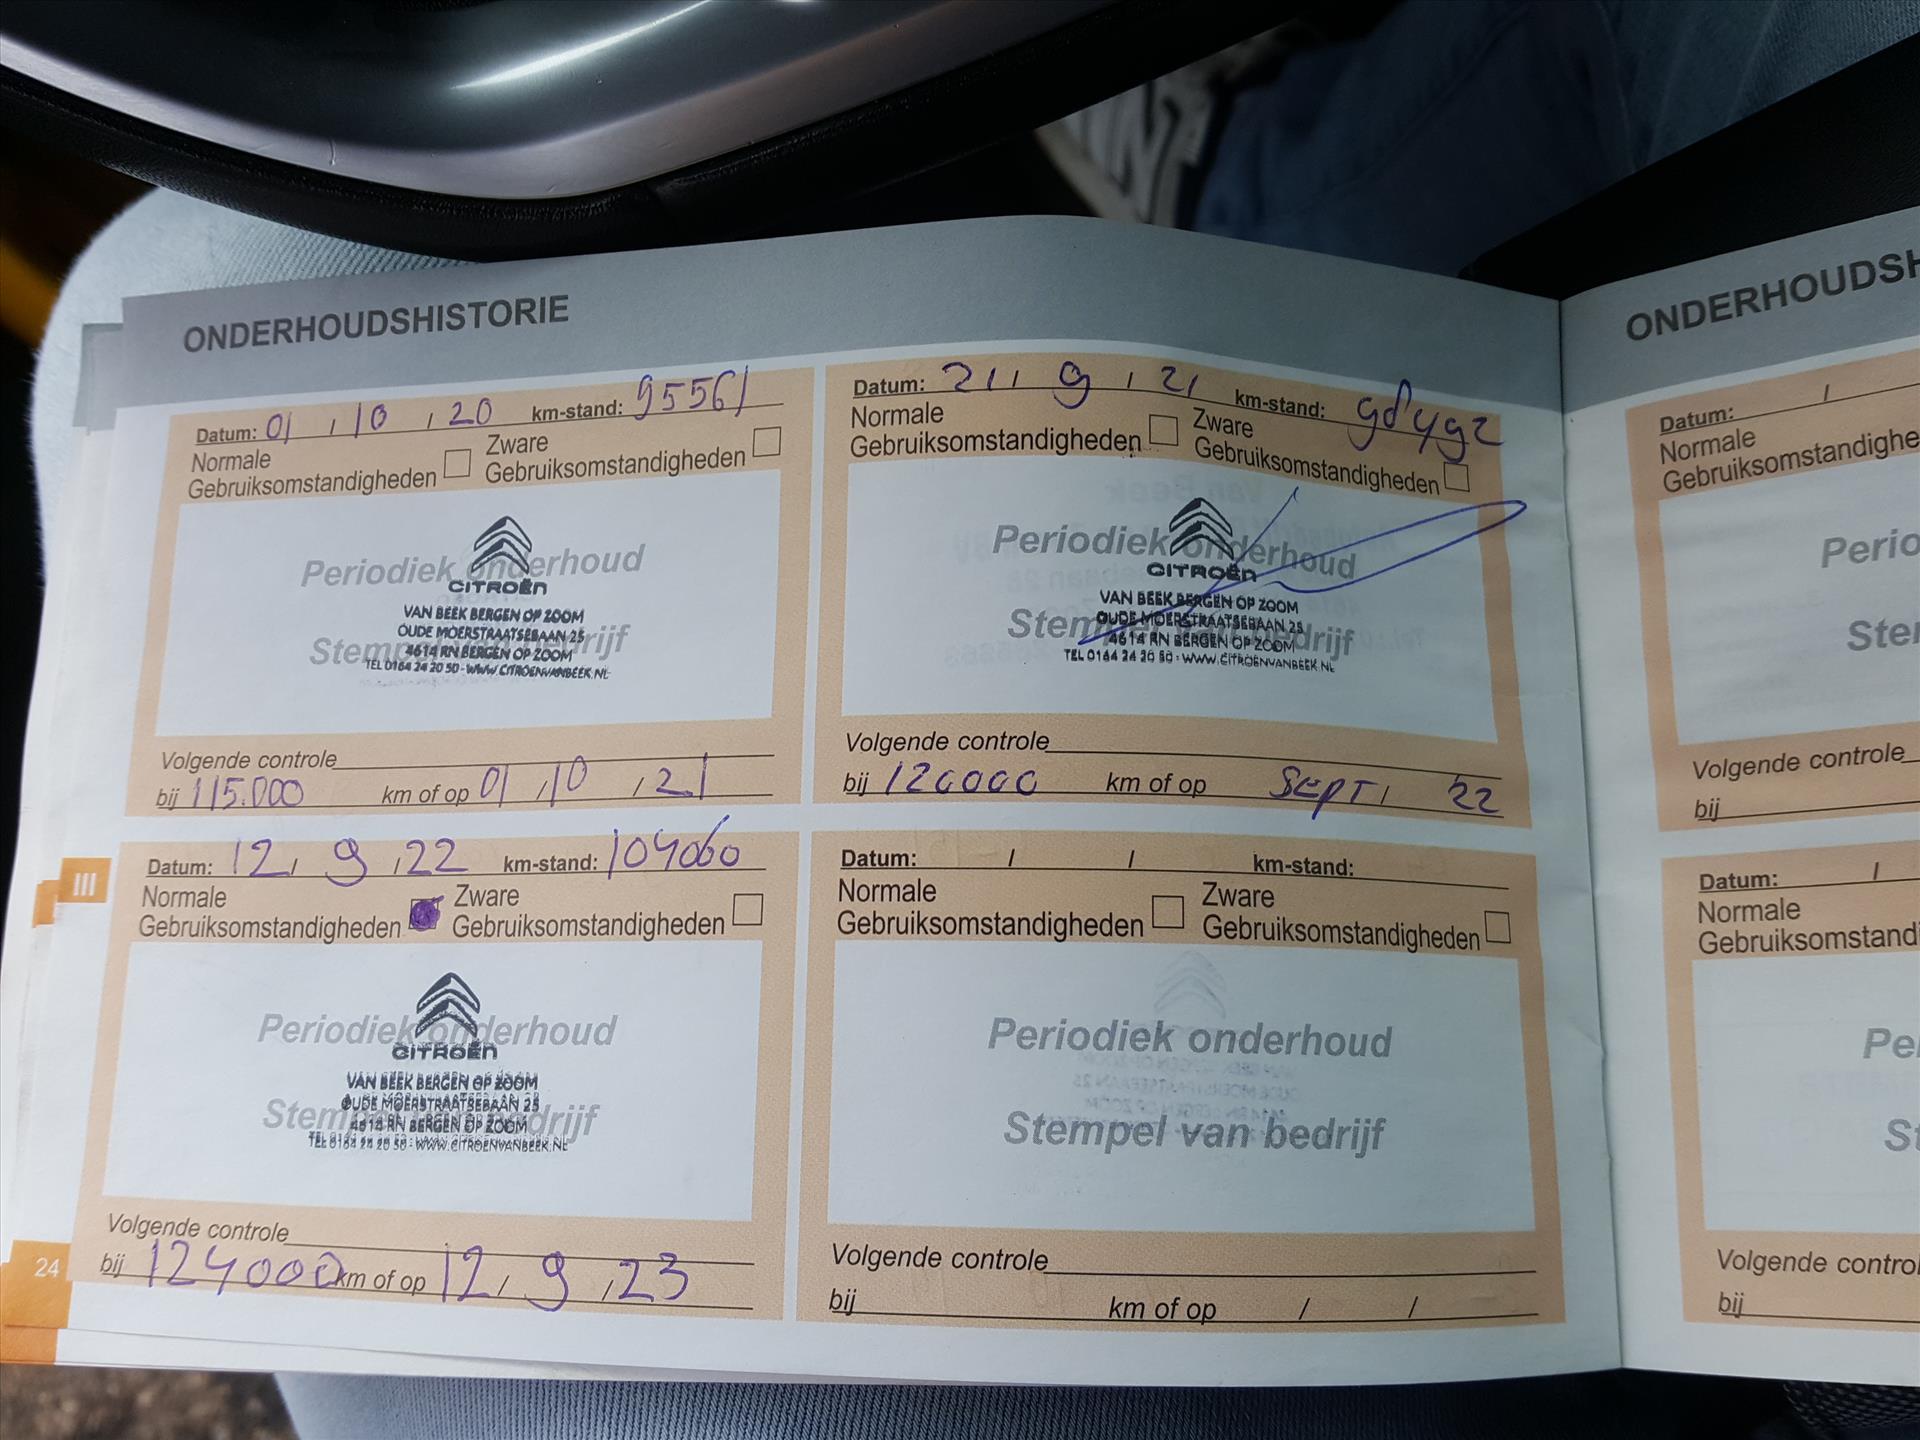 ONDERHOUDSHISTORIE
Datum: 01 / 10 / 20 km-stand: 95561
Normale Gebruiksomstandigheden
Zware Gebruiksomstandigheden
Periodiek onderhoud
CITROËN
VAN BEEK BERGEN OP ZOOM
OUDE MOERSTRAATSEBAAN 25
Stempel van bedrijf
4614 RN BERGEN OP ZOOM
TEL 0164 24 20 50 - WWW.CITROENVANBEEK.NL
Volgende controle
bij 115.000 km of op 01 / 10 / 21
Datum: 21 / 9 / 21 km-stand: 98492
Normale Gebruiksomstandigheden
Zware Gebruiksomstandigheden
Periodiek onderhoud
CITROËN
VAN BEEK BERGEN OP ZOOM
OUDE MOERSTRAATSEBAAN 25
Stempel van bedrijf
4614 RN BERGEN OP ZOOM
TEL 0164 24 20 50 - WWW.CITROENVANBEEK.NL
Volgende controle
bij 120000 km of op SEPT / '22
Datum: 12 / 9 / 22 km-stand: 104060
Normale Gebruiksomstandigheden
Zware Gebruiksomstandigheden
Periodiek onderhoud
CITROËN
VAN BEEK BERGEN OP ZOOM
OUDE MOERSTRAATSEBAAN 25
Stempel van bedrijf
4614 RN BERGEN OP ZOOM
TEL 0164 24 20 50 - WWW.CITROENVANBEEK.NL
Volgende controle
bij 124000 km of op 12 / 9 / 23
Datum: / / km-stand:
Normale Gebruiksomstandigheden
Zware Gebruiksomstandigheden
Periodiek onderhoud
Stempel van bedrijf
Volgende controle
bij km of op / /
III
24
ONDERHOUDSH
Datum: /
Normale
Gebruiksomstandighe
Perio
Ste
Volgende controle
bij
Datum: /
Normale
Gebruiksomstandi
Pe
St
Volgende contro
bij